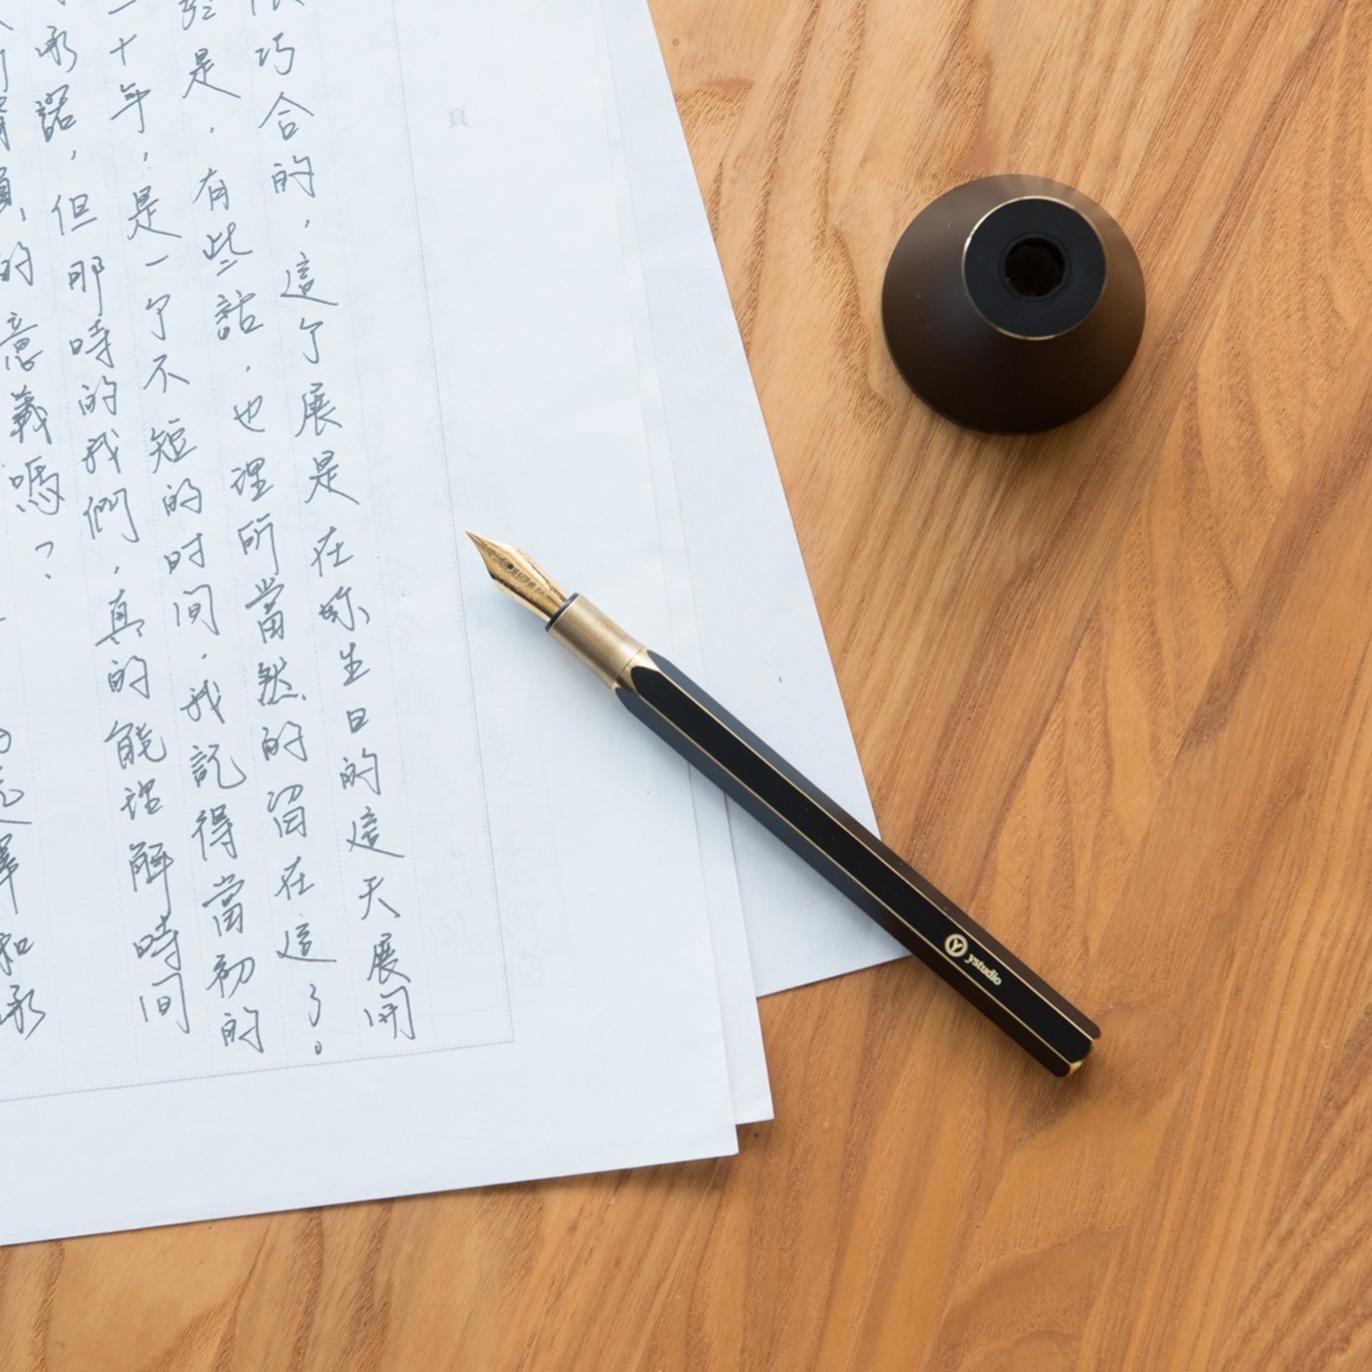 巧合的，這個展是在妳生日的這天展開
是，有些話，也理所當然的留在這了。
十年，是一个不短的时间，我記得當初的
承諾，但那時的我們，真的能理解時間
的意義嗎？
和承
ystudio